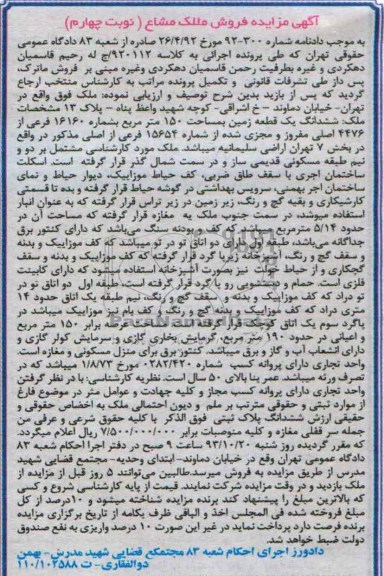 آگهی مزایده فروش مللک مشاع ( نوبت چهارم)
به موجب دادنامه شماره ۳۰۰-۹۲ مورخ ۲۶/۴/۹۲ صادره از شعبه ۸۳ دادگاه عمومی
حقوقی تهران که طی پرونده اجرائی به کلاسه ۹۲۰۱۱۲/ج له رحیم قاسمیان
دهکردی و غیره بطرفیت رحمن قاسمیان دهکردی وغیره مبنی بر فروش ماترک،
پس داز طی تشرفات قانونی و تکمیل پرونده مراتب به کارشناس منتخب ارجاع
گردید که پس از بازید بدین شرح توصیف و ارزیابی نموده: ملک فوق واقع در
تهران- خیابان دماوند – خ اشراقی- کوچه شهید واعظ پناه – پلاک ۱۳ مشخصات
ملک: ششدانگ یک قطعه زمین بمساحت ۱۵۰ متر مربع بشماره ۱۶۱۶۰ فرعی از
۴۴۷۶ اصلی مفروز و مجزی شده از شماره ۱۵۶۵۴ فرعی از اصلی مذکور در واقع
در بخش ۷ تهران اراضی سلیمانیه میباشد. ملک مورد کارشناسی مشتمل بر دو و
نیم طبقه مسکونی قدیمی ساز و در سمت شمال گذر قرار گرفته است. اسکلت
ساختمان اجری با سقف طاق ضربی، کف حیاط موزاییک، دیوار حیاط و نمای
ساختمان اجر بهمنی، سرویس بهداشتی در گوشه حیاط قرار گرفته و بده تا قسمتی
کارشیکاری و بقیه گچ و رنگ، زیر زمین در زیر تراس قرار گرفته که به عنوان انبار
استفاده میوشد، در سمت جنوب ملک یه مغازه قرار گرفته که مساحت آن در
۵/۱۴ مترمربع میباشد که کف و بودنه سنگ می‌باشد که دارای کنتور برق
جداگانه می‌باشد، طبقه اول دارای دو اتاق تو در تو میباشد که کف موزاییک و بدنه
و سقف گچ و رنگ، آشپزخانه زیرپا گرد قرار گرفته که کف موزاییک و بدنه و سقف
گچکاری و از حیاط خلت نیز بصورت آشپزخانه استفاده میشود که دارای کابینت
فلزی است. حمام و دستشویی رو پا گرد قرار گرفته است. طبقه اول دو اتاق نو در
تو دراد که کف موزاییک و بدنه و سقف گچ و رنگ، نیم طبقه یک اتاق حدود ۱۴
متری دراد که کف موزاییک و بدنه گچ و رنگ و کف بام نیز موزاییک میباشد در
پاگرد سوم یک اتاق کوچک قرار گرفته مساحت عرصه برابر ۱۵۰ متر مربع
و اعیانی در حدود ۱۹۰ متر مربع، گرمایش بخاری گازی و سرمایش کولر گازی و
دارای انشعاب آب و گاز و برق میباشد، کنتور برق برای منزل مسکونی و مغازه است.
واحد تجاری دارای پروانه کسب شماره ۰۲۸۲/۴۲۰ مورخ ۱/۸/۷۳ میباشد که در
تصرف ورثه میباشد. عمر بنا بالای ۵۰ سال است. نظریه کارشناسی: با در نظر گرفتن
واحد تجاری دارای پروانه کسب مجاز و کلیه جهات و عوامل متر در موضوع فارغ
از موارد ثبتی و حقوقی مترتب بر ملم و دیون احتمالی ملک به اخضاص حقوقی و
حقیقی ارزش ششدانگ پلاک ثبتی فوق الذکر با کلیه حقوق شرعی و عرفی من
جمله سر قفلی مغازه و کلیه منصوبات برابر ۷/۵۰۰/۰۰۰/۰۰۰ ریال اعلام میگردد
که مقرر گردیده روز شنبه ۹۳/۱۰/۲۰ ساعت ۹ صبح در دفتر اجرا احکام شعبه ۸۳
دادگاه عمومی تهران وقع در خیابان دماوند- ابتدای وحدیه- مجتمع قضایی شهید
مدرس از طریق مزایده به فروش میرسد.طالبین می‌توانند ۵ روز قبل از مزایده از
ملک بازدید و در وقت مزایده شرکت نمایند. قیمت از پایه کارشناسی شروع و کسی
که بالاترین مبلغ را پیشنهاد کند برنده مزایده شناخته میشود و ۱۰درصد از کل
مبلغ فروخته شده فی المجلس اخذ و الباقی ظرف یکماه از تاریخ برگزاری مزایده
برنده فرصت دارد پرداخت نماید در غیر این صورت ۱۰ درصد واریزی به نفع صندوق
دولت ضبط خواهد شد.
دادورز اجرای احکام شعبه ۸۳ مجتمکع قضایی شهید مدرش- بهمن
ذوالفقاری- ت ۱۱۰/۱۰۲۵۸۸